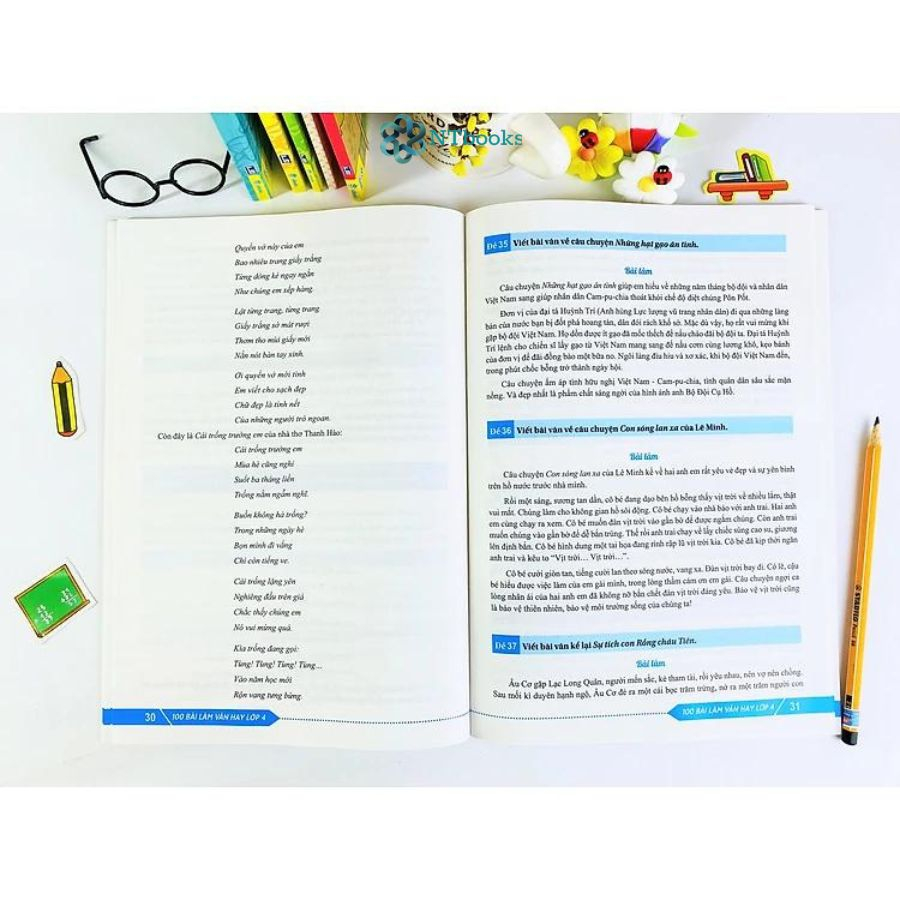 NTbooks
Quyển vở này của em
Bao nhiêu trang giấy trắng
Từng dòng kẻ ngay ngắn
Như chúng em xếp hàng.
Lật từng trang, từng trang
Giấy trắng sờ mát rượi
Thơm tho mùi giấy mới
Nắn nót bàn tay xinh.
Ơi quyển vở mới tinh
Em viết cho sạch đẹp
Chữ đẹp là tính nết
Của những người trò ngoan.
Còn đây là Cái trống trường em của nhà thơ Thanh Hào:
Cái trống trường em
Mùa hè cũng nghỉ
Suốt ba tháng liền
Trống nằm ngẫm nghĩ.
Buồn không hả trống?
Trong những ngày hè
Bọn mình đi vắng
Chỉ còn tiếng ve.
Cái trống lặng yên
Nghiêng đầu trên giá
Chắc thấy chúng em
Nó vui mừng quá.
Kìa trống đang gọi:
Tùng! Tùng! Tùng! Tùng...
Vào năm học mới
Rộn vang tưng bừng.
30 100 BÀI LÀM VĂN HAY LỚP 4
Đề 35 Viết bài văn về câu chuyện Những hạt gạo ân tình.
Bài làm
Câu chuyện Những hạt gạo ân tình giúp em hiểu về những năm tháng bộ đội và nhân dân
Việt Nam sang giúp nhân dân Cam-pu-chia thoát khỏi chế độ diệt chủng Pôn Pốt.
Đơn vị của đại tá Huỳnh Trí (Anh hùng Lực lượng vũ trang nhân dân) đi qua những làng
bản của nước bạn bị đốt phá hoang tàn, dân đói rách khổ sở. Mặc dù vậy, họ rất vui mừng khi
gặp bộ đội Việt Nam. Họ dồn được ít gạo đã mốc thếch để nấu cháo đãi bộ đội ta. Đại tá Huỳnh
Trí lệnh cho chiến sĩ lấy gạo từ Việt Nam mang sang để nấu cơm cùng lương khô, kẹo bánh
của đơn vị để đãi đồng bào một bữa no. Ngôi làng đìu hiu và xơ xác, khi bộ đội Việt Nam đến,
trong phút chốc bỗng trở thành ngày hội.
Câu chuyện ấm áp tình hữu nghị Việt Nam - Cam-pu-chia, tình quân dân sâu sắc mặn
nồng. Và đẹp nhất là phẩm chất sáng ngời của hình ảnh anh Bộ Đội Cụ Hồ.
Đề 36 Viết bài văn về câu chuyện Con sóng lan xa của Lê Minh.
Bài làm
Câu chuyện Con sóng lan xa của Lê Minh kể về hai anh em rất yêu vẻ đẹp và sự yên bình
trên hồ nước trước nhà mình.
Rồi một sáng, sương tan dần, cô bé đang dạo bên hồ bỗng thấy vịt trời về nhiều lắm, thật
vui mắt. Chúng làm cho không gian hồ sôi động. Cô bé chạy vào nhà báo với anh trai. Hai anh
em cùng chạy ra xem. Cô bé muốn đàn vịt trời vào gần bờ để được ngắm chúng. Còn anh trai
muốn chúng vào gần bờ để dễ bắn trúng. Thế rồi anh trai chạy về lấy chiếc súng cao su, giương
lên định bắn. Cô bé hình dung một tai họa đang rình rập lũ vịt trời kia. Cô bé đã kịp thời ngăn
anh trai và kêu to “Vịt trời… Vịt trời…”.
Cô bé cười giòn tan, tiếng cười lan theo sóng nước, vang xa. Đàn vịt trời bay đi. Có lẽ, cậu
bé hiểu được việc làm của em gái mình, trong lòng thầm cảm ơn em gái. Câu chuyện ngợi ca
lòng nhân ái của hai anh em đã không nỡ bắn chết đàn vịt trời đáng yêu. Bảo vệ vịt trời cũng
là bảo vệ thiên nhiên, bảo vệ môi trường sống của chúng ta!
Đề 37 Viết bài văn kể lại Sự tích con Rồng cháu Tiên.
Bài làm
Âu Cơ gặp Lạc Long Quân, người mến sắc, kẻ tham tài, rồi yêu nhau, nên vợ nên chồng.
Sau mối kì duyên hạnh ngộ, Âu Cơ đẻ ra một cái bọc trăm trứng, nở ra một trăm người con
100 BÀI LÀM VĂN HAY LỚP 4 31
STAEDTLER